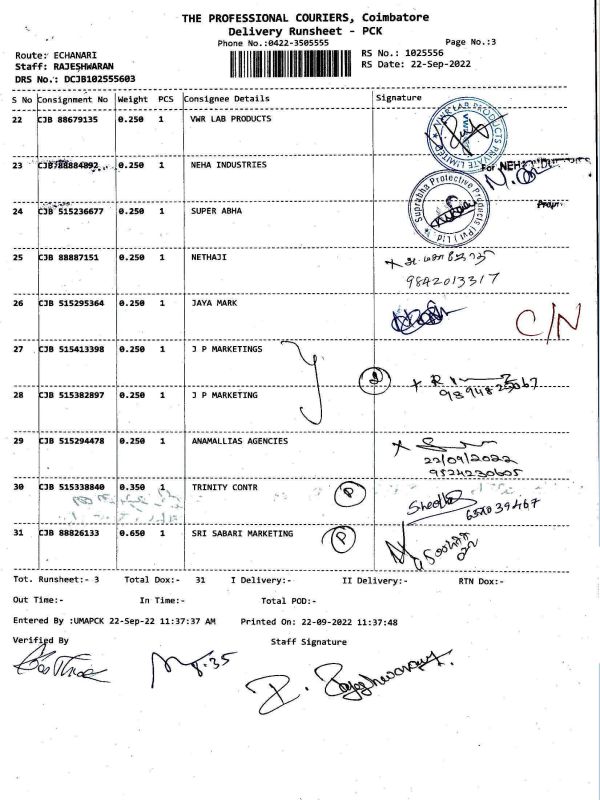 THE PROFESSIONAL COURIERS, Coimbatore
Delivery Runsheet - PCK
Phone No.:0422-3505555
Page No.:3
Route: ECHANARI
RS No.: 1025556
Staff: RAJESHWARAN
RS Date: 22-Sep-2022
DRS No.: DCJB102555603
S No Consignment No Weight PCS Consignee Details Signature
22 CJB 88679135 0.250 1 VWR LAB PRODUCTS
VWR LAB PRODUCTS PRIVATE LIMITED
23 CJB 88884892 0.250 1 NEHA INDUSTRIES
For NEHA
Suprabha Protective Products (Pvt) Ltd
24 CJB 515236677 0.250 1 SUPER ABHA
Propr.
25 CJB 88887151 0.250 1 NETHAJI
9842013317
26 CJB 515295364 0.250 1 JAYA MARK
C/N
27 CJB 515413398 0.250 1 J P MARKETINGS
2
28 CJB 515382897 0.250 1 J P MARKETING
29 CJB 515294478 0.250 1 ANAMALLIAS AGENCIES
22/09/2022
9524230605
30 CJB 515338840 0.350 1 TRINITY CONTR
P
31 CJB 88826133 0.650 1 SRI SABARI MARKETING
P
Tot. Runsheet:- 3 Total Dox:- 31 I Delivery:- II Delivery:- RTN Dox:-
Out Time:- In Time:- Total POD:-
Entered By :UMAPCK 22-Sep-22 11:37:37 AM Printed On: 22-09-2022 11:37:48
Verified By Staff Signature
R. Rajeshwaran